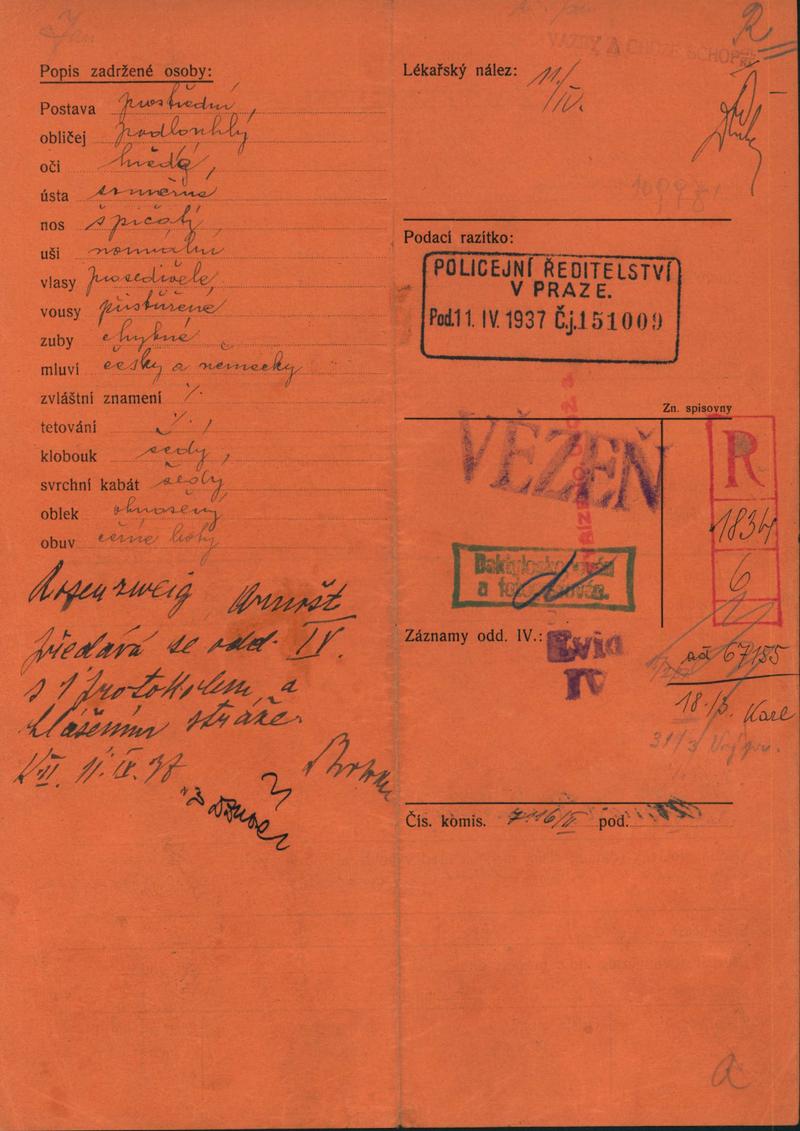 Popis zadržené osoby:
Postava prostřední,
obličej podlouhlý
oči hnědé,
ústa souměrná
nos špičatý,
uši normální
vlasy prosedivělé,
vousy přistřižené
zuby chybné
mluví česky a německy
zvláštní znamení ./.
tetování ./.
klobouk šedý,
svrchní kabát šedý,
oblek obnošený
obuv černé boty
Rosenzweig Arnošt
předává se odd. IV.
s 1 protokolem a
hlášením stráže.
11. IV. 37
R
Lékařský nález: 11./IV.
VAZBY A CHŮZE SCHOPEN
Podací razítko:
POLICEJNÍ ŘEDITELSTVÍ
V PRAZE.
Pod. 11. IV. 1937 Č.j. 151009
Zn. spisovny
VĚZEŇ
R
1834
6
Daktyloskopován
a fotografován.
Záznamy odd. IV.:
Evid
IV
ad 67155
18./3. Karl
31/3
Čís. komis. pod.
a